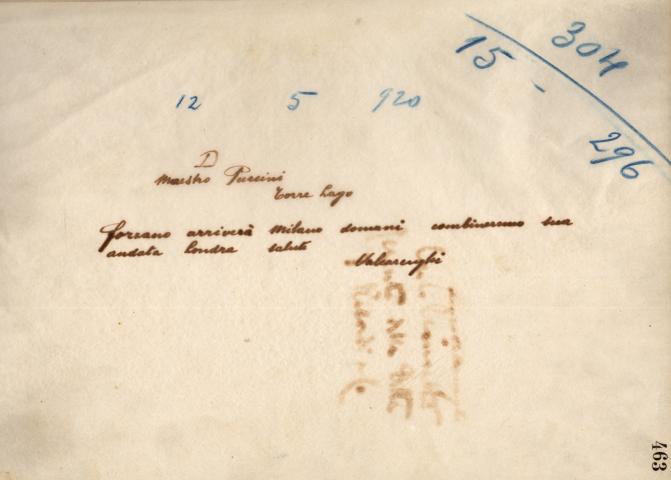 304
15 -
296
12 5 920
D
Maestro Puccini
Torre Lago
forzano arriverà Milano domani combineremo sua
andata Londra saluti
Valcarenghi
463